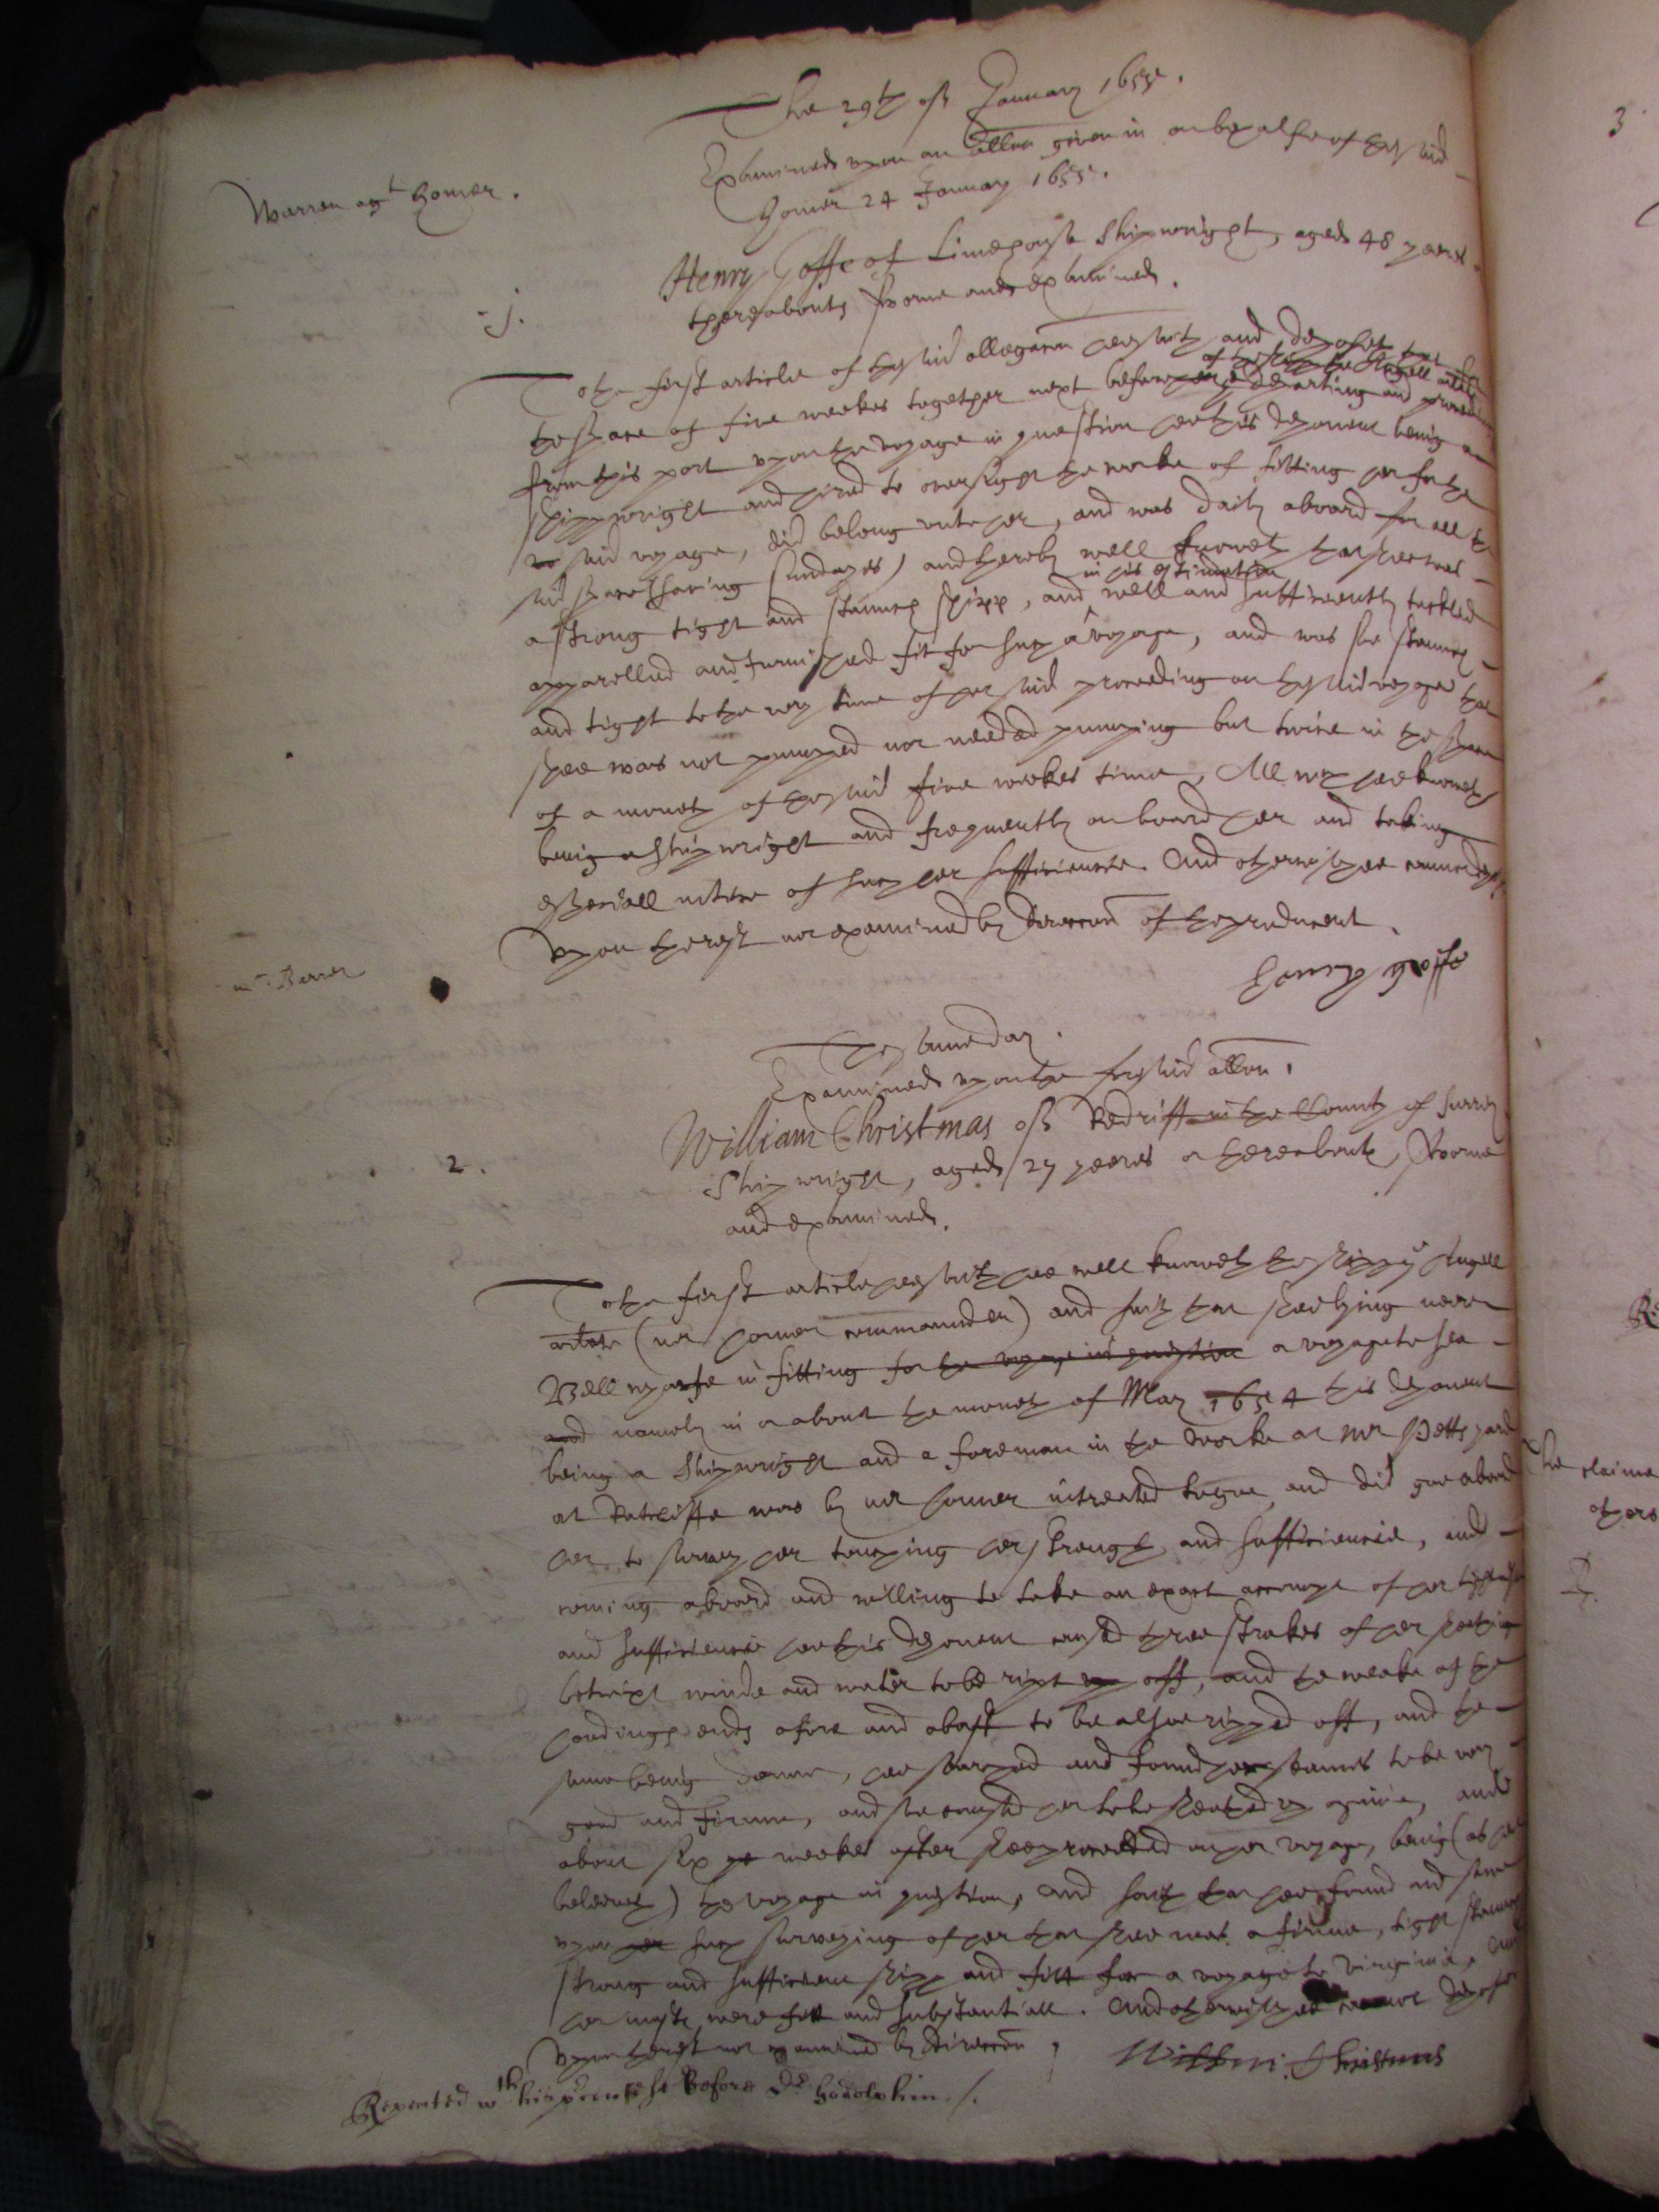 The 29th of January 1655.
Examined upon an allon given in on behalfe of the said
Warren agt Homer.
Homer 24 January 1655.
Henry Goffe of Limehouse Shipwright, aged 48 yeares
j.
thereabouts sworne and examined.
To the first article of the said allegacon hee saith and deposeth that for
of the shipp the Angell arlate
the space of five weekes together next before her departing and proceeding
from this port upon the voyage in question hee this deponent being a
shippwright and hired to oversight the worke of fitting her for the
said voyage, did belong unto her, and was daily aboard for all the
said space (saving sundayes) and thereby well knoweth that shee was
in his estimation
a strong tight and staunch shipp, and well and sufficiently tackled
apparelled and furnished fit for such a voyage, and was soe staunch
and tight to the very time of her said proceeding on the said voyage that
shee was not pumped nor needed pumping but twice in the space
of a moneth of the said five weekes time, All wch hee knoweth
being a shipwright and frequently on board her and taking
especiall notice of such her sufficiencie. And otherwise hee cannot depose
Upon the rest not examined by direccon of the producent.
Henry goffe
The same day.
Examined upon the foresaid allon.
William Christmas of Redriff in the County of Surrey
2.
Shipwright, aged 27 yeares or thereabouts, sworne
and examined.
To the first article hee saith hee well knoweth the shipp ye Angell
arlate (mr Homer commander) and saith that shee lying neere
Bell wharfe in fitting for the voyage in question a voyage to sea
and namely in or about the moneth of May 1654 this deponent
being a Shipwright and a foreman in the worke at mr Petts yard
at Ratcliffe was by mr Homer intreated to goe, and did goe aboard
her to survey her touching her strength and sufficiencie, and
coming aboard and willing to take an exact accompt of her tightnesse
and sufficiencie hee this deponent caused three strakes of her sheathing
betwixt winde and water to be ript up off, and the weeke of the
hoodings ends afore and abaft to be alsoe ripped off, and the
same being donne, hee searched and found her seames to be very
good and firme, and soe caused her to be sheathed up againe, and
about six weekes after shee proceeded on her voyage, being (as hee
beleeveth) the voyage in question, and saith that hee found and saw
upon her such surveying of her that shee was a firme, tight staunch
strong and sufficient shipp and fitt for a voyage to Virginia, and
her masts were fitt and substantiall. And otherwise hee cannot depose
Upon the rest not examined by direccon
Willm Christmas
Repeated wth his precontest before Dr Godolphin ./.